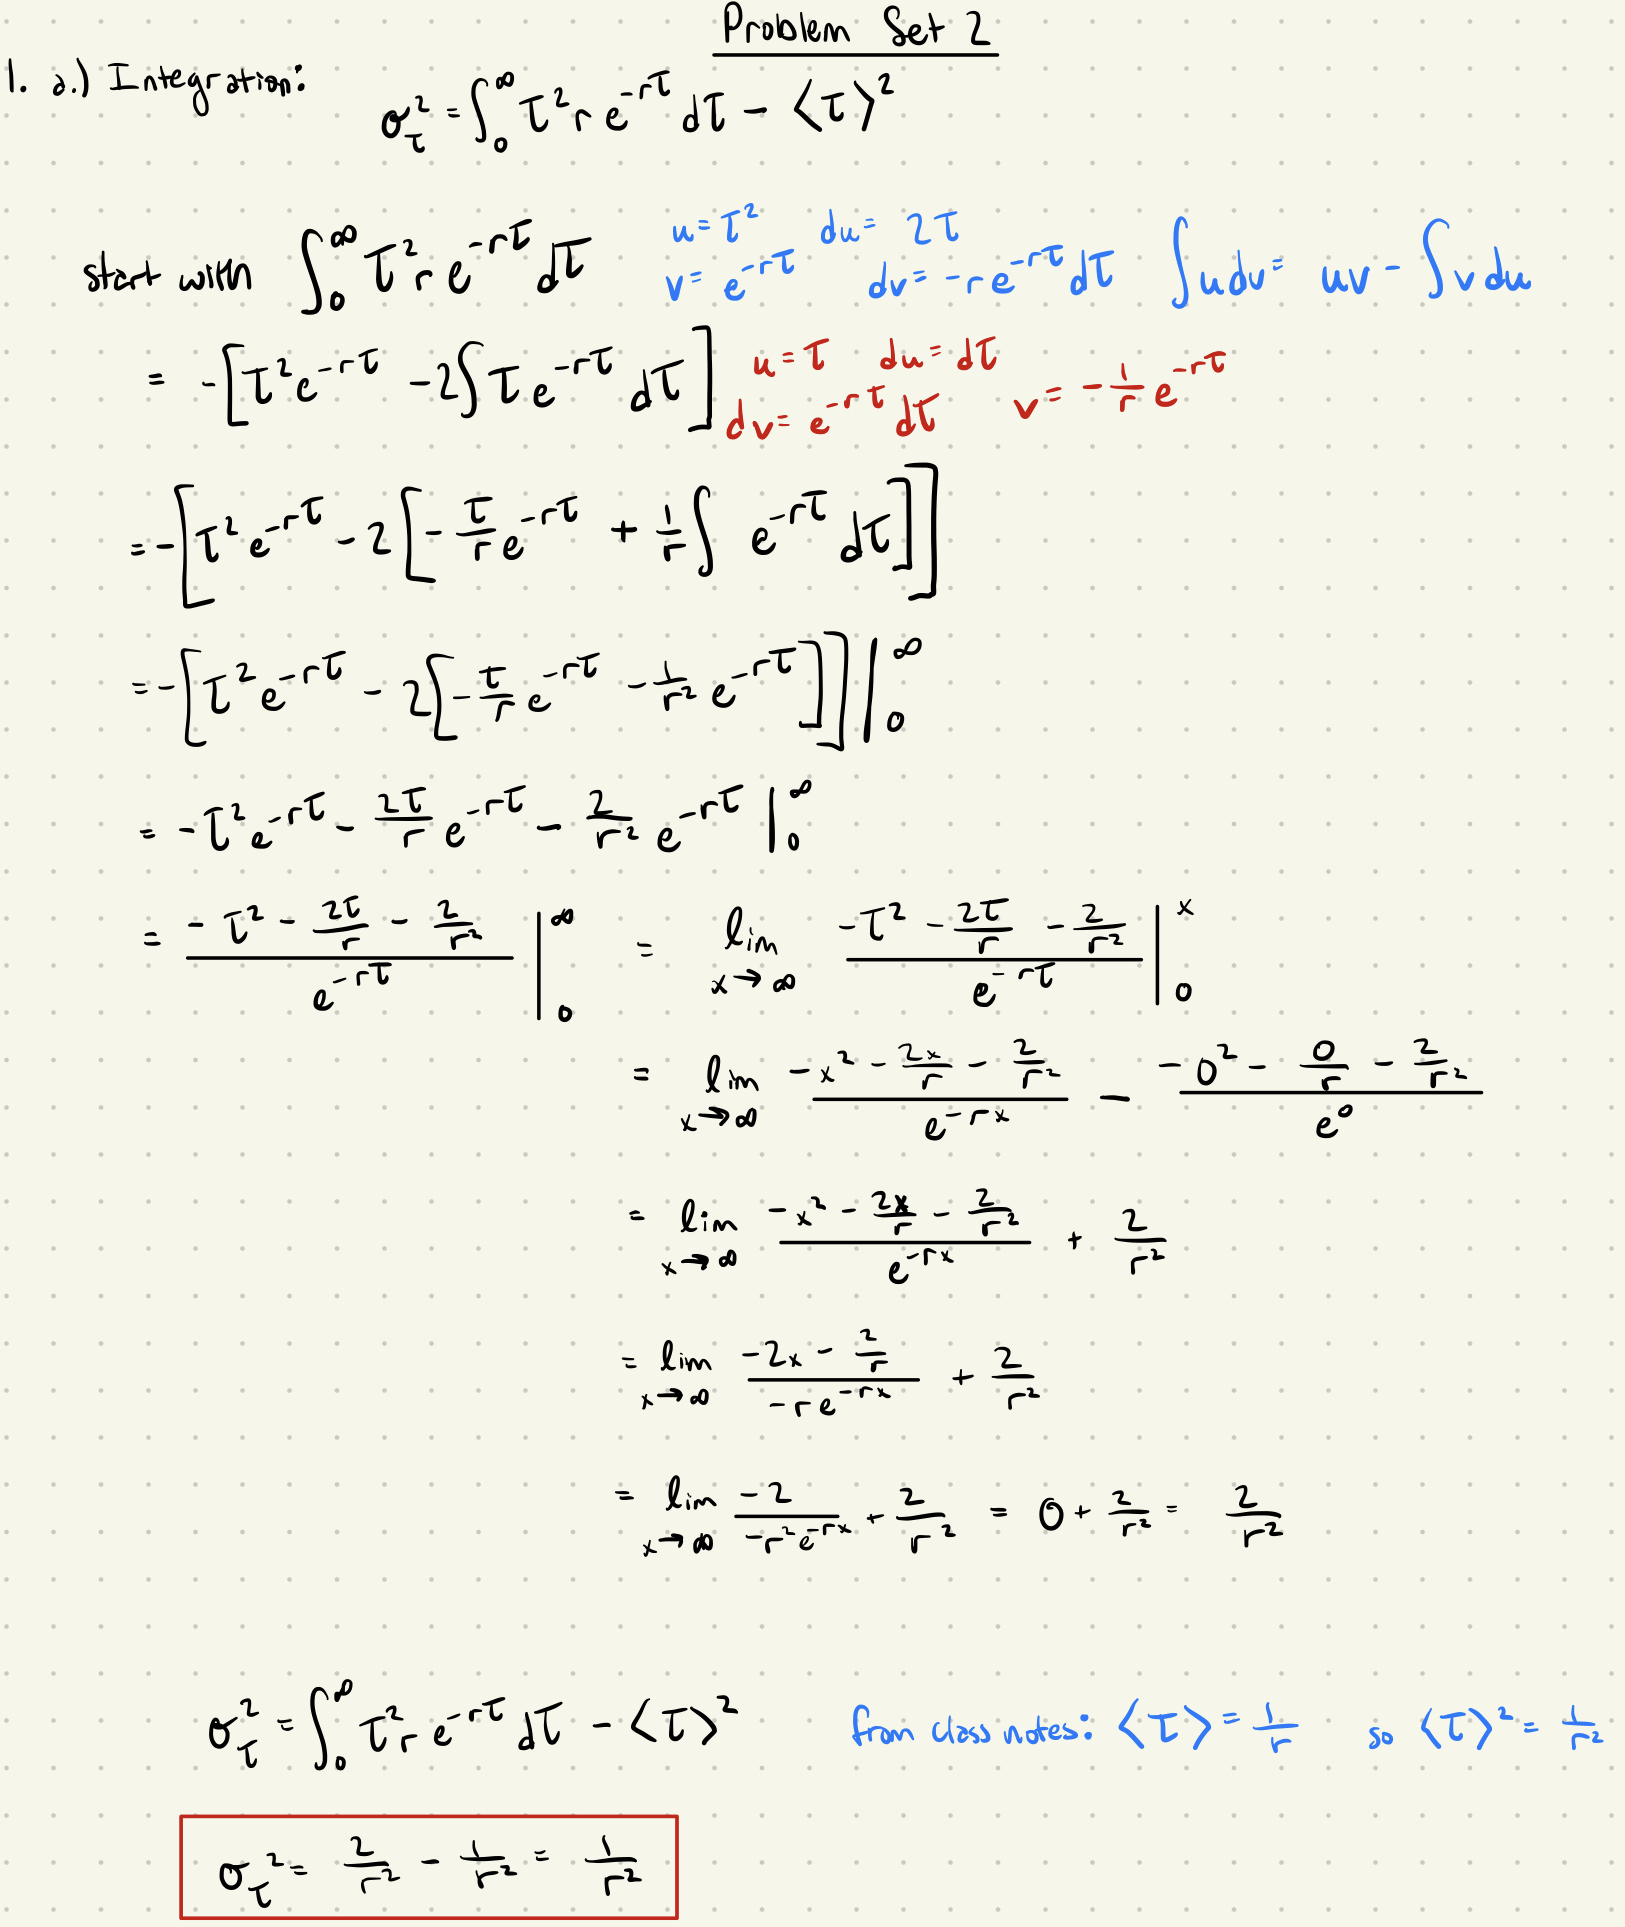 Problem Set 2
1. a.) Integration:
σ_τ² = ∫₀^∞ τ² r e^{-rτ} dτ - ⟨τ⟩²
start with ∫₀^∞ τ² r e^{-rτ} dτ   u = τ²   du = 2τ
v = e^{-rτ}   dv = -r e^{-rτ} dτ   ∫u dv = uv - ∫v du
= -[τ² e^{-rτ} - 2∫τ e^{-rτ} dτ]   u = τ   du = dτ
dv = e^{-rτ} dτ   v = -1/r e^{-rτ}
= -[τ² e^{-rτ} - 2[-τ/r e^{-rτ} + 1/r ∫ e^{-rτ} dτ]]
= -[τ² e^{-rτ} - 2[-τ/r e^{-rτ} - 1/r² e^{-rτ}]] |₀^∞
= -τ² e^{-rτ} - 2τ/r e^{-rτ} - 2/r² e^{-rτ} |₀^∞
= (-τ² - 2τ/r - 2/r²)/e^{-rτ} |₀^∞ = lim_{x→∞} (-τ² - 2τ/r - 2/r²)/e^{-rτ} |₀^x
= lim_{x→∞} (-x² - 2x/r - 2/r²)/e^{-rx} - (-0² - 0/r - 2/r²)/e⁰
= lim_{x→∞} (-x² - 2x/r - 2/r²)/e^{-rx} + 2/r²
= lim_{x→∞} (-2x - 2/r)/(-r e^{-rx}) + 2/r²
= lim_{x→∞} -2/(-r² e^{-rx}) + 2/r² = 0 + 2/r² = 2/r²
σ_τ² = ∫₀^∞ τ² r e^{-rτ} dτ - ⟨τ⟩²   from class notes: ⟨τ⟩ = 1/r   so ⟨τ⟩² = 1/r²
σ_τ² = 2/r² - 1/r² = 1/r²